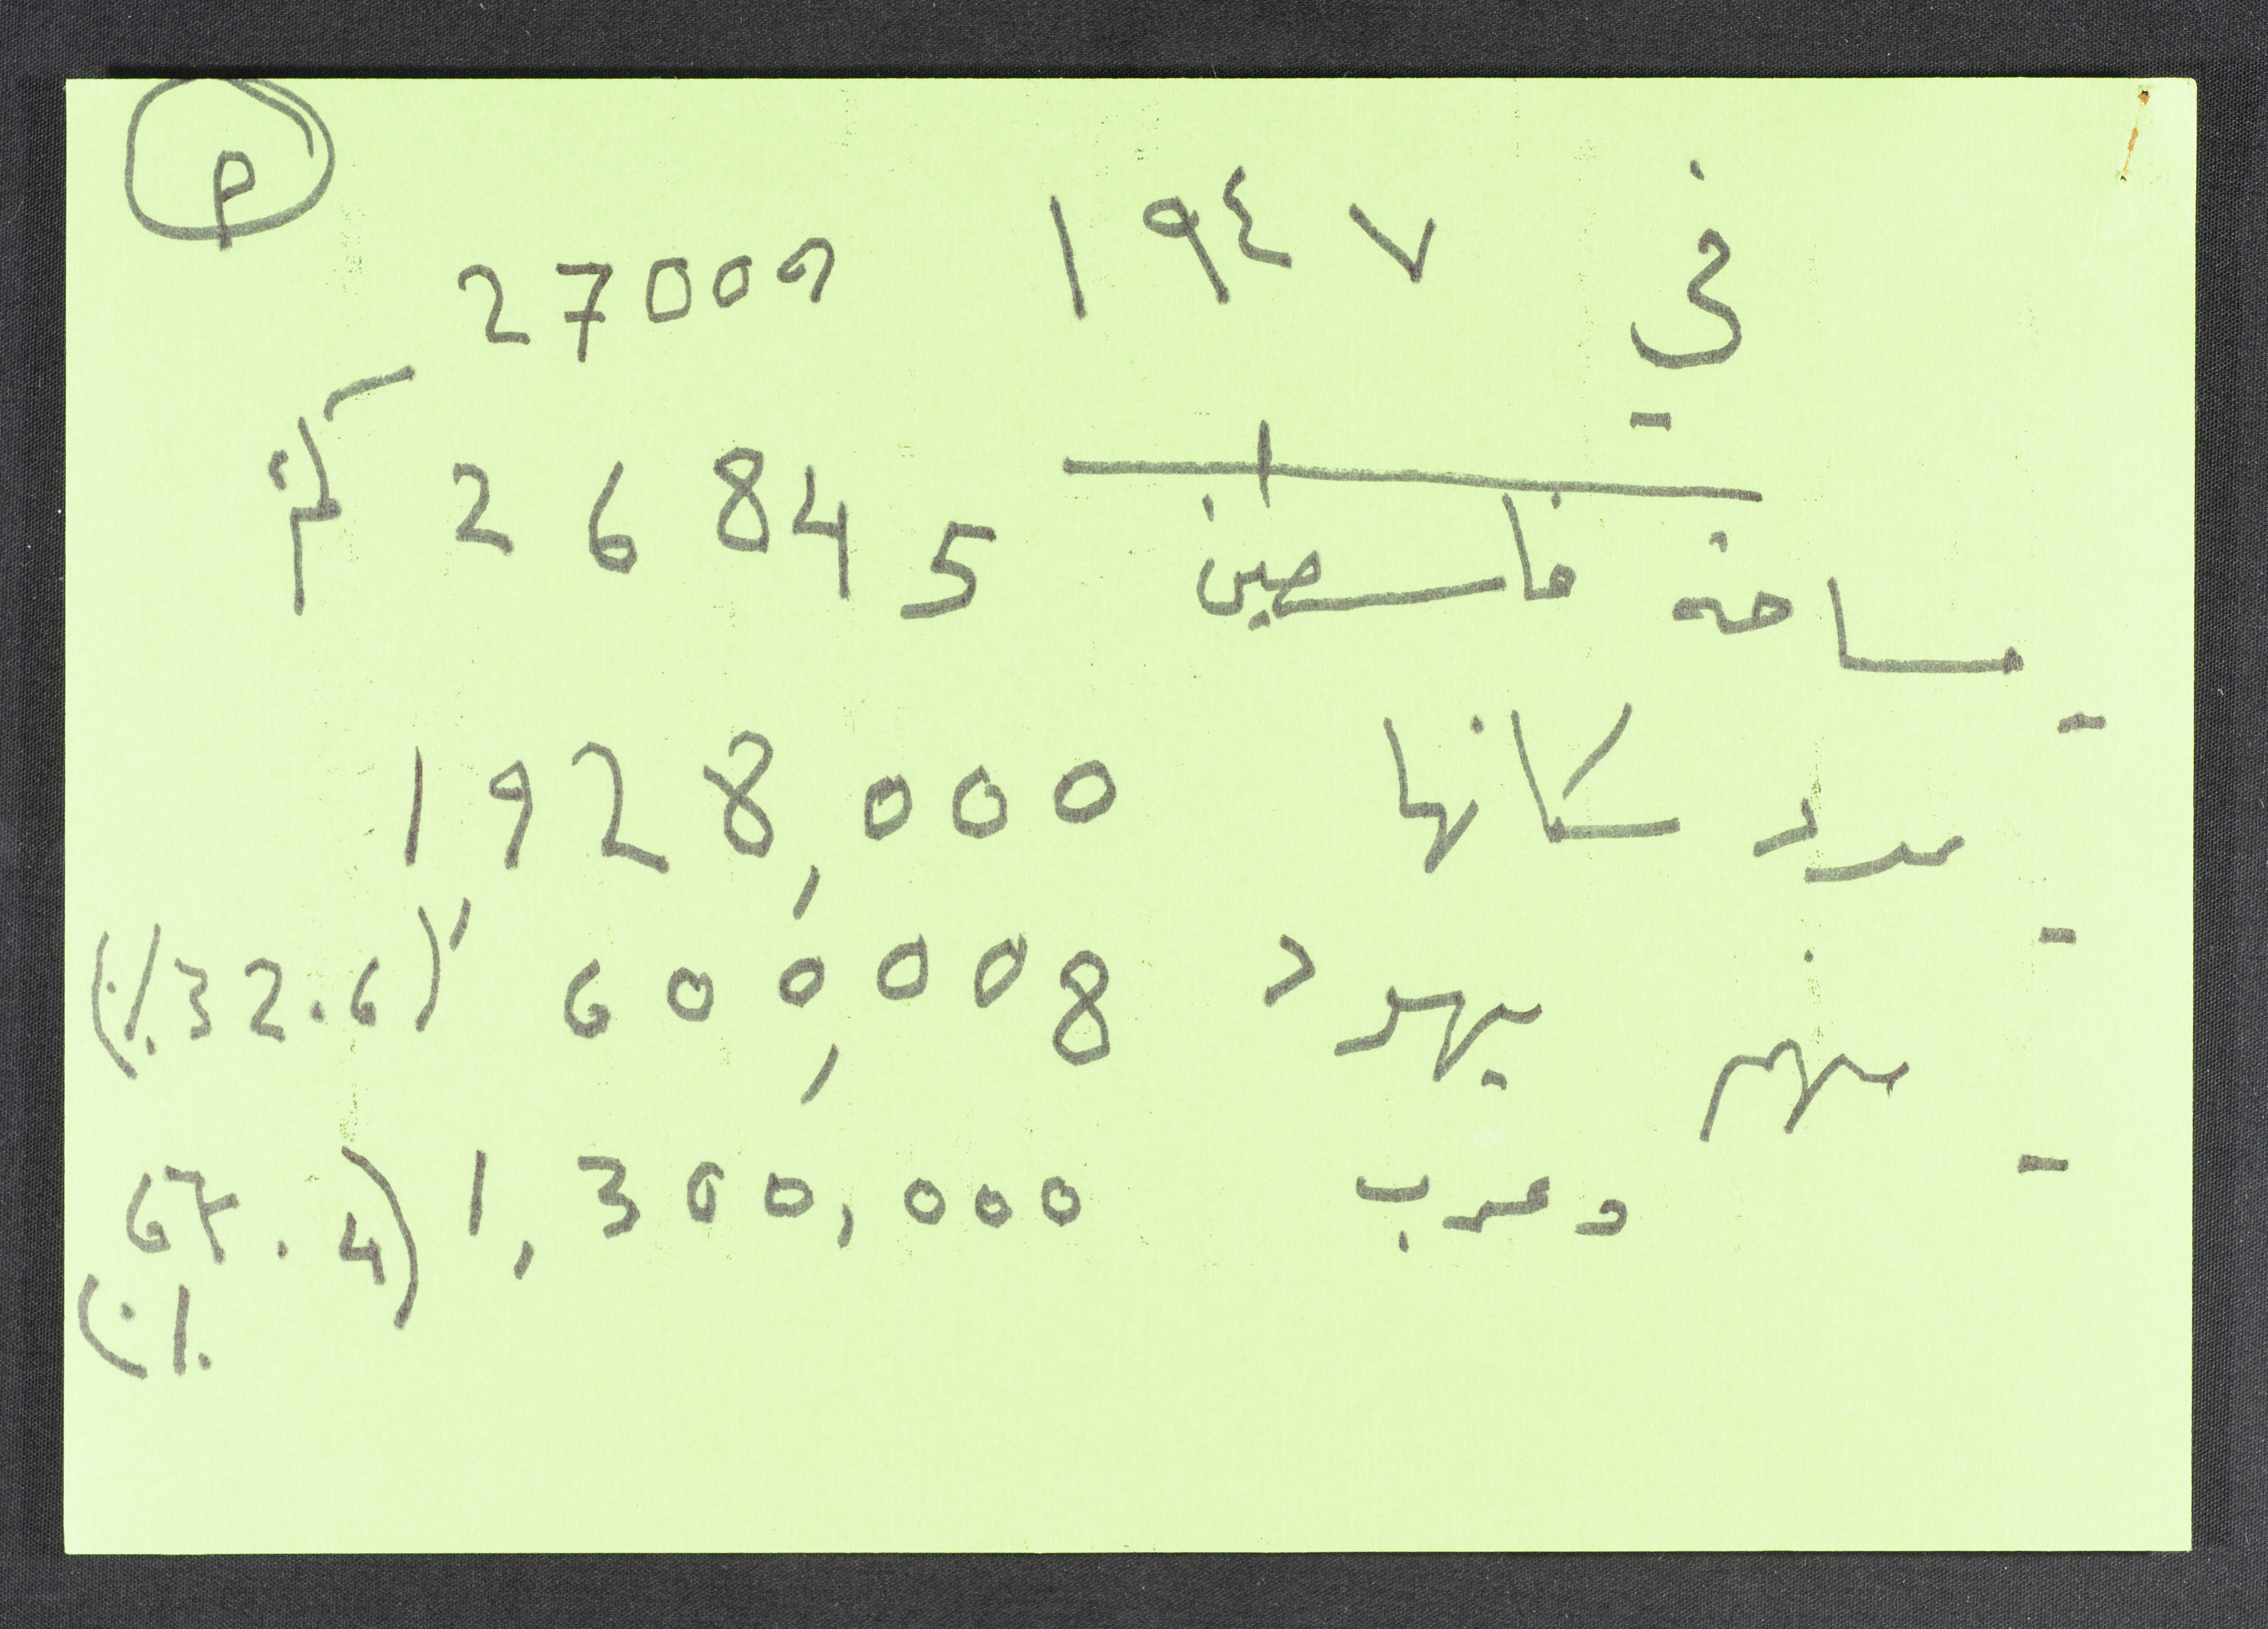 P
في ١٩٤٧
27000
- مساحة فلسطين 26845 كم
- عدد سكانها 1928,000
- منهم يهود 600,008 (32.6٪)
- وعرب 1,300,000 (67.4٪)